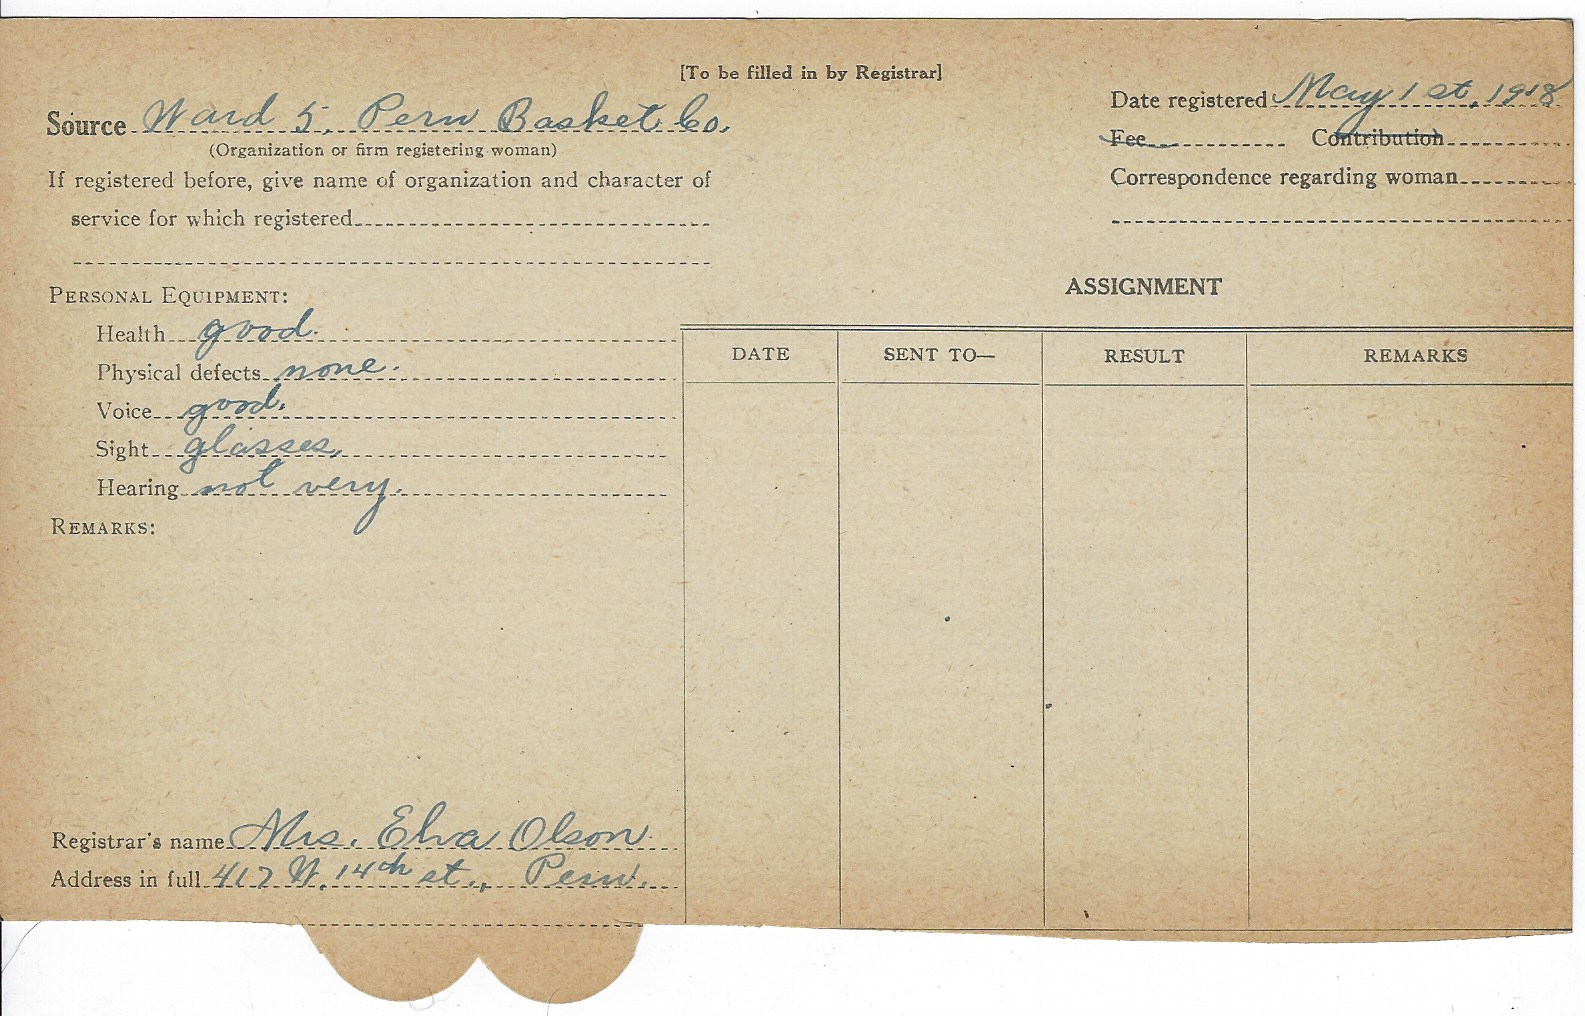 [To be filled in by Registrar]
Source Ward 5. Peru Basket Co.
(Organization or firm registering woman)
If registered before, give name of organization and character of
service for which registered
Date registered May 1 st, 1918
Fee Contribution
Correspondence regarding woman
PERSONAL EQUIPMENT:
Health good.
Physical defects none.
Voice good.
Sight glasses.
Hearing not very.
REMARKS:
Registrar's name Mrs. Elva Olson
Address in full 417 W. 14th st., Peru.
ASSIGNMENT
DATE SENT TO— RESULT REMARKS